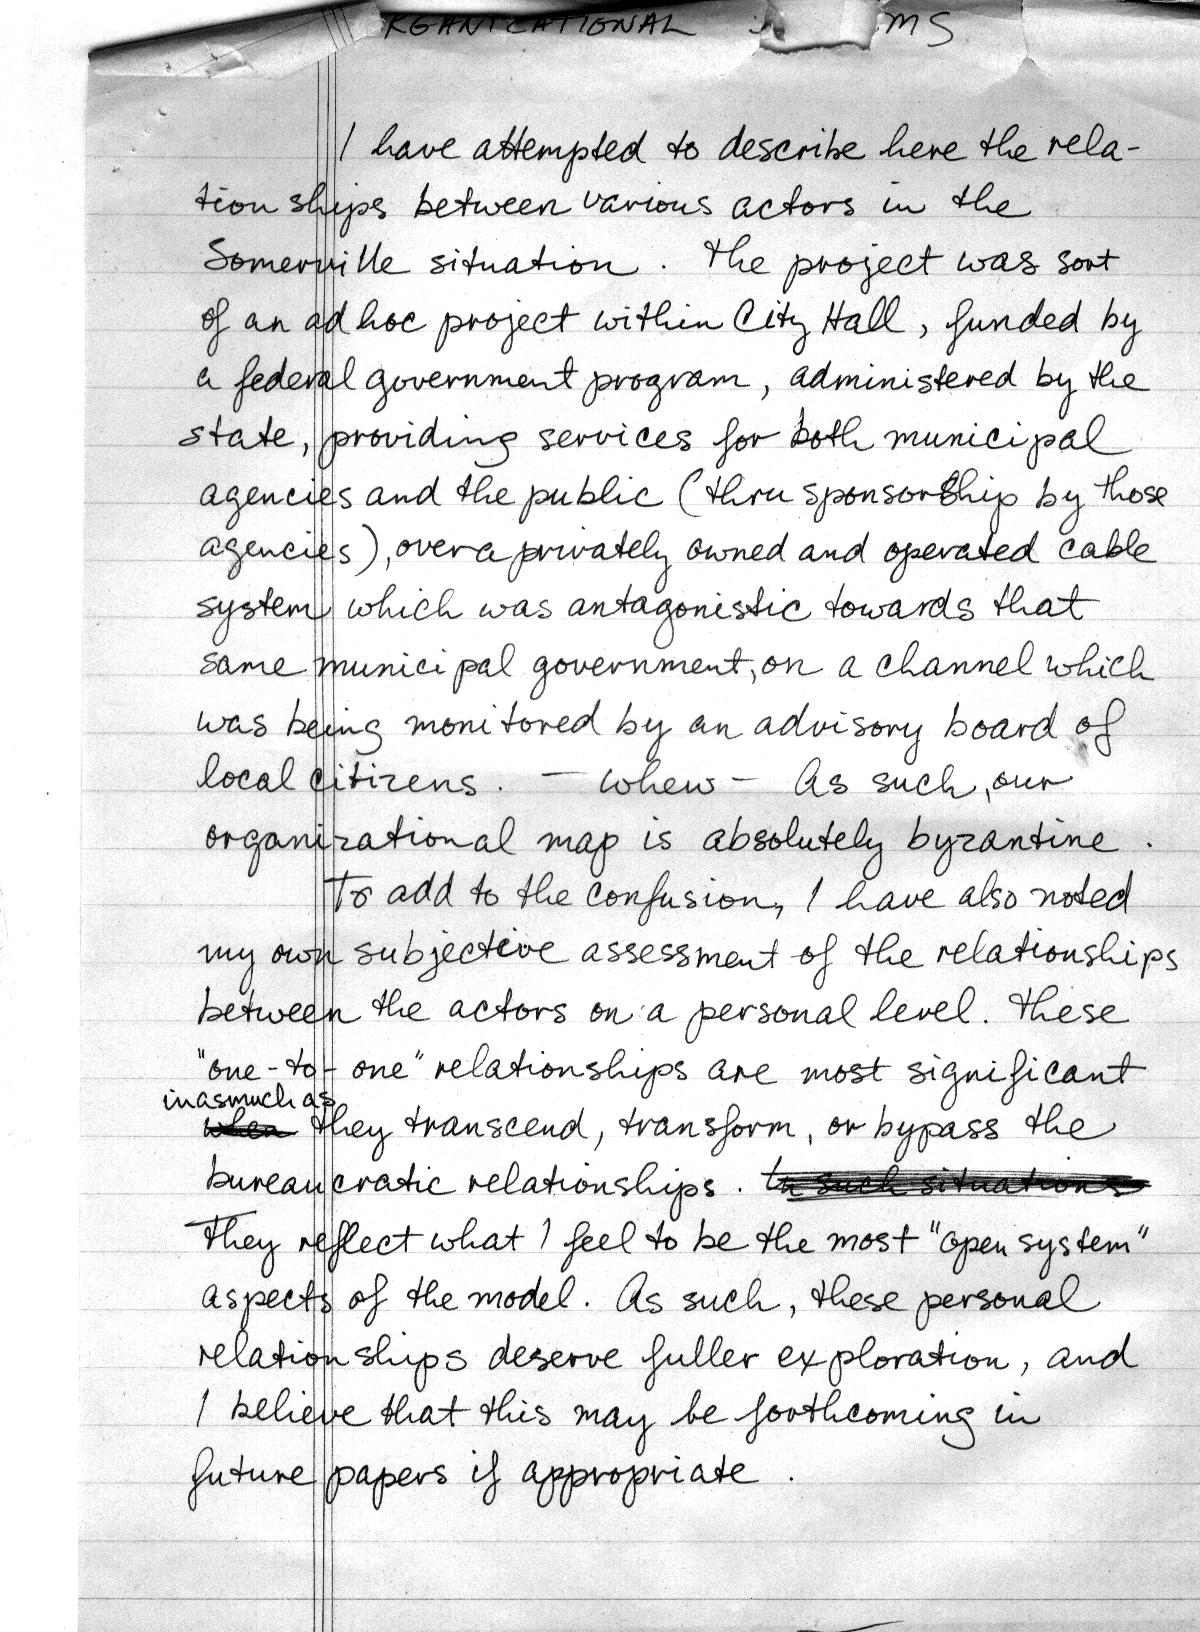 RGANIZATIONAL MS
I have attempted to describe here the rela-
tionships between various actors in the
Somerville situation. The project was sort
of an ad hoc project within City Hall, funded by
a federal government program, administered by the
state, providing services for both municipal
agencies and the public (thru sponsorship by those
agencies), over a privately owned and operated cable
system which was antagonistic towards that
same municipal government, on a channel which
was being monitored by an advisory board of
local citizens. — whew — As such, our
organizational map is absolutely byzantine.
To add to the confusion, I have also noted
my own subjective assessment of the relationships
between the actors on a personal level. These
"one-to-one" relationships are most significant
inasmuch as
when they transcend, transform, or bypass the
bureaucratic relationships. In such situations
They reflect what I feel to be the most "open system"
aspects of the model. As such, these personal
relationships deserve fuller exploration, and
I believe that this may be forthcoming in
future papers if appropriate.